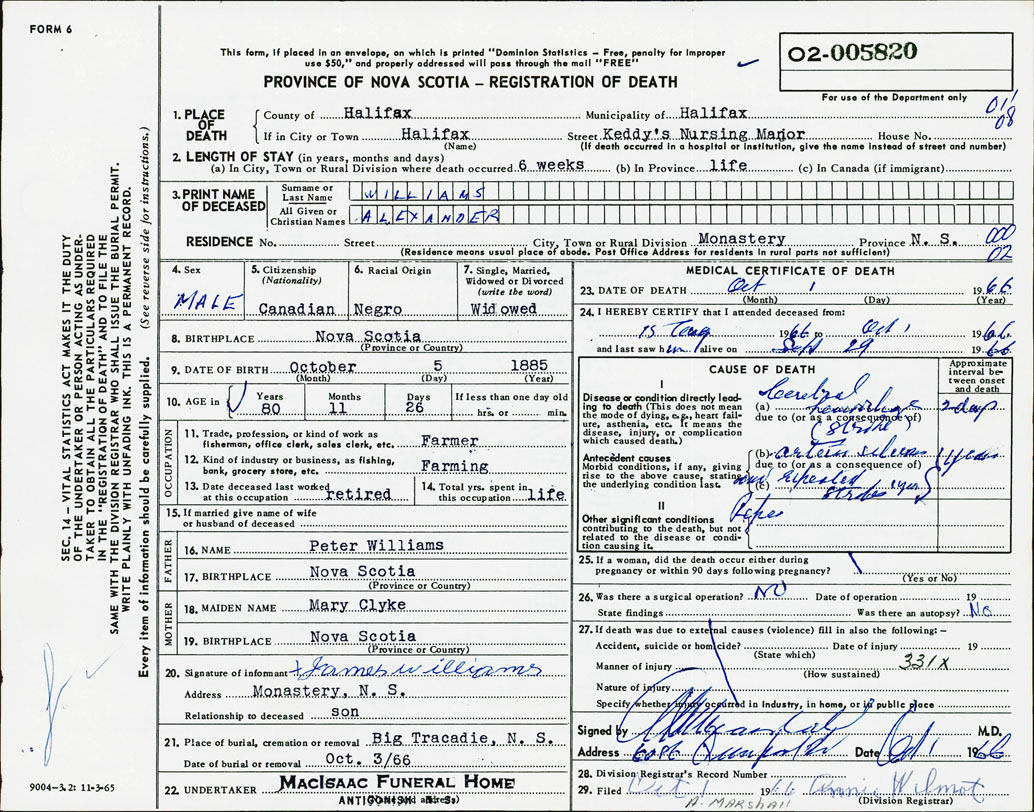 FORM 6
This form, if placed in an envelope, on which is printed "Dominion Statistics – Free, penalty for improper
use $50," and properly addressed will pass through the mail "FREE"
PROVINCE OF NOVA SCOTIA – REGISTRATION OF DEATH
02-005820
For use of the Department only
011
08
1. PLACE OF DEATH
County of Halifax Municipality of Halifax
If in City or Town Halifax Street Keddy's Nursing Manor House No.
(Name) (If death occurred in a hospital or institution, give the name instead of street and number)
2. LENGTH OF STAY (in years, months and days)
(a) In City, Town or Rural Division where death occurred 6 weeks (b) In Province life (c) In Canada (if immigrant)
3. PRINT NAME OF DECEASED
Surname or Last Name WILLIAMS
All Given or Christian Names ALEXANDER
RESIDENCE No. Street City, Town or Rural Division Monastery Province N. S.
(Residence means usual place of abode. Post Office Address for residents in rural parts not sufficient)
000
02
4. Sex
MALE
5. Citizenship
(Nationality)
Canadian
6. Racial Origin
Negro
7. Single, Married,
Widowed or Divorced
(write the word)
Widowed
8. BIRTHPLACE Nova Scotia
(Province or Country)
9. DATE OF BIRTH October 5 1885
(Month) (Day) (Year)
10. AGE in
Years Months Days If less than one day old
80 11 26 hrs. or min.
OCCUPATION
11. Trade, profession, or kind of work as
fisherman, office clerk, sales clerk, etc. Farmer
12. Kind of industry or business, as fishing,
bank, grocery store, etc. Farming
13. Date deceased last worked
at this occupation retired
14. Total yrs. spent in
this occupation life
15. If married give name of wife
or husband of deceased
FATHER
16. NAME Peter Williams
17. BIRTHPLACE Nova Scotia
(Province or Country)
MOTHER
18. MAIDEN NAME Mary Clyke
19. BIRTHPLACE Nova Scotia
(Province or Country)
20. Signature of informant James williams
Address Monastery, N. S.
Relationship to deceased son
21. Place of burial, cremation or removal Big Tracadie, N. S.
Date of burial or removal Oct. 3/66
22. UNDERTAKER MACISAAC FUNERAL HOME
ANTIGONISH N. S.
MEDICAL CERTIFICATE OF DEATH
23. DATE OF DEATH Oct 1 1966
(Month) (Day) (Year)
24. I HEREBY CERTIFY that I attended deceased from:
15 1966 to Oct 1 1966
and last saw him alive on Sept 29 1966
CAUSE OF DEATH
Approximate
interval be-
tween onset
and death
I
Disease or condition directly lead-
ing to death (This does not mean
the mode of dying, e.g., heart fail-
ure, asthenia, etc. It means the
disease, injury, or complication
which caused death.)
Cerebral
(a) hemorrhage 2 days
due to (or as a consequence of)
(stroke)
Antecedent causes
Morbid conditions, if any, giving
rise to the above cause, stating
the underlying condition last.
(b) years
due to (or as a consequence of)
(c) repeated
strokes 1 yr
II
Other significant conditions
contributing to the death, but not
related to the disease or condi-
tion causing it.
25. If a woman, did the death occur either during
pregnancy or within 90 days following pregnancy?
(Yes or No)
26. Was there a surgical operation? NO Date of operation 19
State findings Was there an autopsy? No
27. If death was due to external causes (violence) fill in also the following: –
Accident, suicide or homicide? Date of injury 19
(State which)
Manner of injury 331X
(How sustained)
Nature of injury
Specify whether injury occurred in industry, in home, or in public place
Signed by M.D.
Address Date Oct 1 1966
28. Division Registrar's Record Number
29. Filed Oct 1 1966 Annie Wilmot
(Division Registrar)
A. MARSHALL
SEC. 14 – VITAL STATISTICS ACT MAKES IT THE DUTY
OF THE UNDERTAKER OR PERSON ACTING AS UNDER-
TAKER TO OBTAIN ALL THE PARTICULARS REQUIRED
IN THE "REGISTRATION OF DEATH" AND TO FILE THE
SAME WITH THE DIVISION REGISTRAR WHO SHALL ISSUE THE BURIAL PERMIT.
WRITE PLAINLY WITH UNFADING INK. THIS IS A PERMANENT RECORD.
Every item of information should be carefully supplied. (See reverse side for instructions.)
9004-3.2: 11-3-65